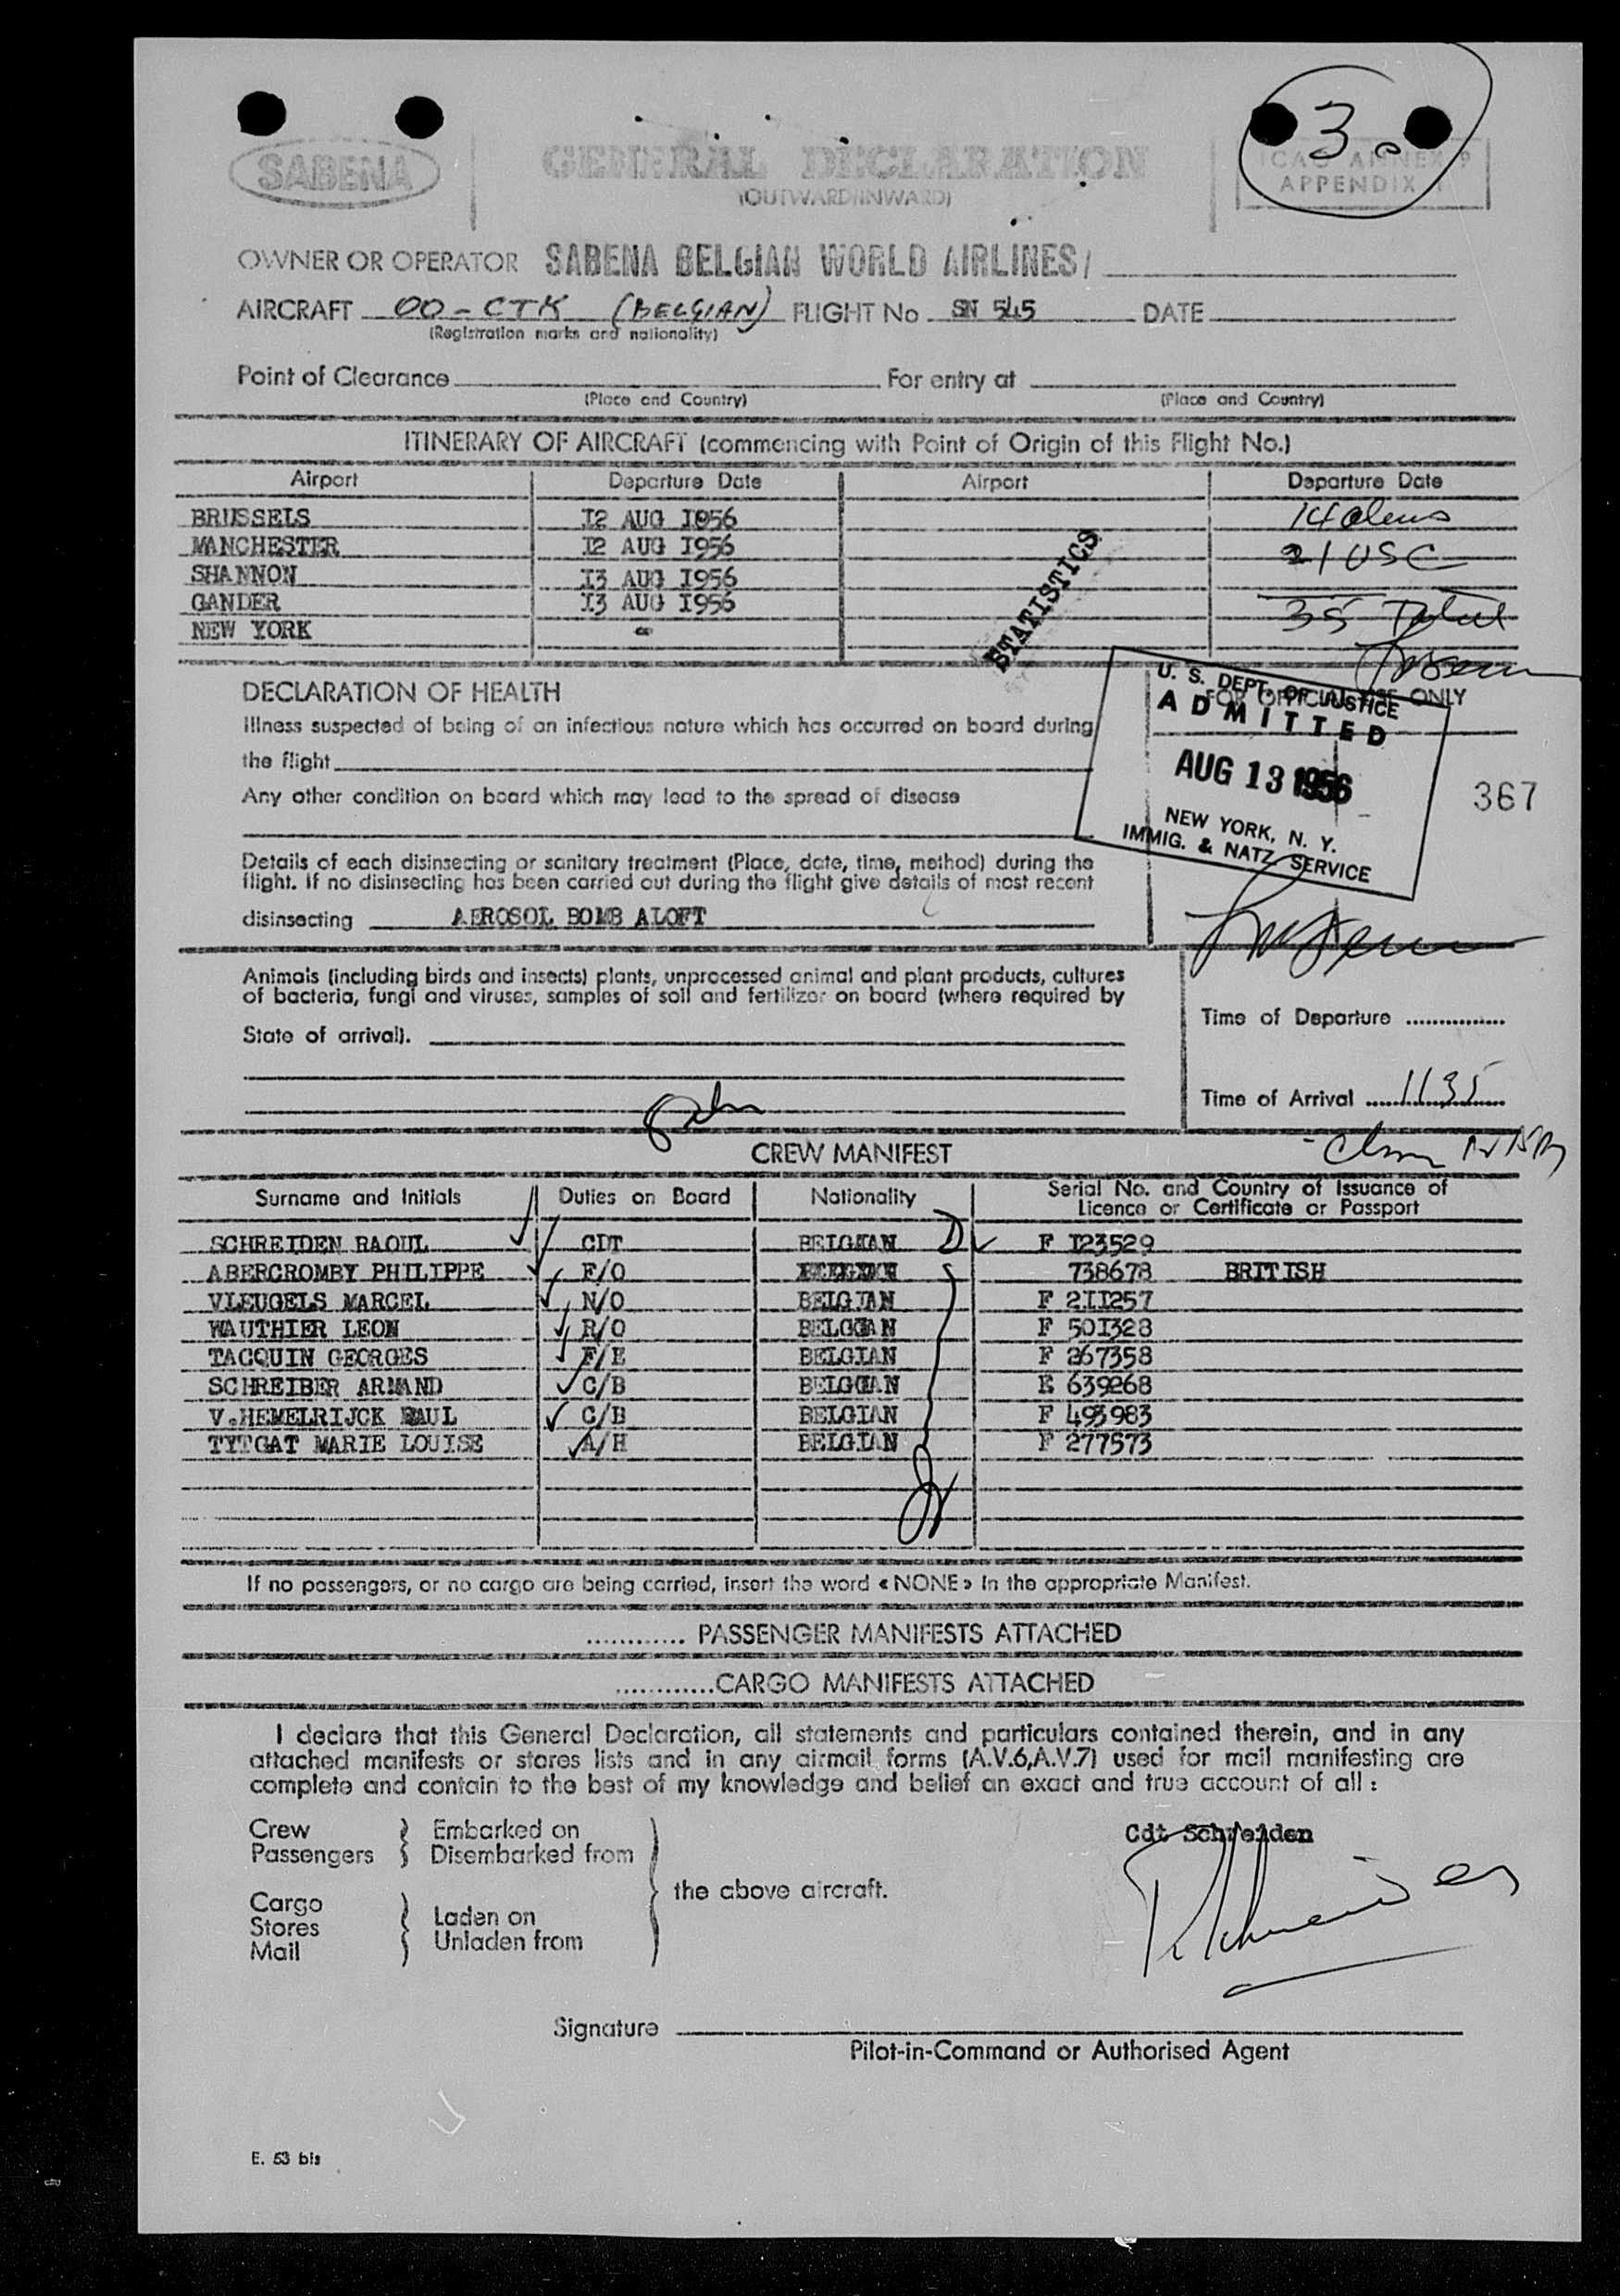 3
SABENA
GENERAL DECLARATION
(OUTWARD/INWARD)
ICAO ANNEX 9
APPENDIX 1
OWNER OR OPERATOR SABENA BELGIAN WORLD AIRLINES/
AIRCRAFT OO-CTK (BELGIAN) FLIGHT No SN 545 DATE
(Registration marks and nationality)
Point of Clearance For entry at
(Place and Country) (Place and Country)
ITINERARY OF AIRCRAFT (commencing with Point of Origin of this Flight No.)
Airport Departure Date Airport Departure Date
BRUSSELS I2 AUG I956 14 aliens
MANCHESTER I2 AUG I956 21 USC
SHANNON I3 AUG I956
GANDER I3 AUG I956 35 Total
NEW YORK
STATISTICS
DECLARATION OF HEALTH
FOR OFFICIAL USE ONLY
U. S. DEPT. OF JUSTICE
ADMITTED
AUG 13 1956
NEW YORK, N. Y.
IMMIG. & NATZ. SERVICE
367
Illness suspected of being of an infectious nature which has occurred on board during
the flight
Any other condition on board which may lead to the spread of disease
Details of each disinsecting or sanitary treatment (Place, date, time, method) during the
flight. If no disinsecting has been carried out during the flight give details of most recent
disinsecting AEROSOL BOMB ALOFT
Animals (including birds and insects) plants, unprocessed animal and plant products, cultures
of bacteria, fungi and viruses, samples of soil and fertilizer on board (where required by
State of arrival).
Time of Departure
Time of Arrival 1135
CREW MANIFEST
Surname and Initials Duties on Board Nationality Serial No. and Country of Issuance of
Licence or Certificate or Passport
SCHREIDEN RAOUL CDT BELGIAN F I23529
ABERCROMBY PHILIPPE F/O 738678 BRITISH
VLEUGELS MARCEL N/O BELGIAN F 2II257
WAUTHIER LEON R/O BELGIAN F 50I328
TACQUIN GEORGES F/E BELGIAN F 267358
SCHREIBER ARMAND C/B BELGIAN E 639268
V.HEMELRIJCK PAUL C/B BELGIAN F 493983
TYTGAT MARIE LOUISE A/H BELGIAN F 277573
If no passengers, or no cargo are being carried, insert the word «NONE» in the appropriate Manifest.
............ PASSENGER MANIFESTS ATTACHED
............CARGO MANIFESTS ATTACHED
I declare that this General Declaration, all statements and particulars contained therein, and in any
attached manifests or stores lists and in any airmail forms (A.V.6,A.V.7) used for mail manifesting are
complete and contain to the best of my knowledge and belief an exact and true account of all :
Crew Embarked on
Passengers Disembarked from
the above aircraft.
Cargo
Stores Laden on
Mail Unladen from
Cdt Schreiden
Signature
Pilot-in-Command or Authorised Agent
E. 53 bis